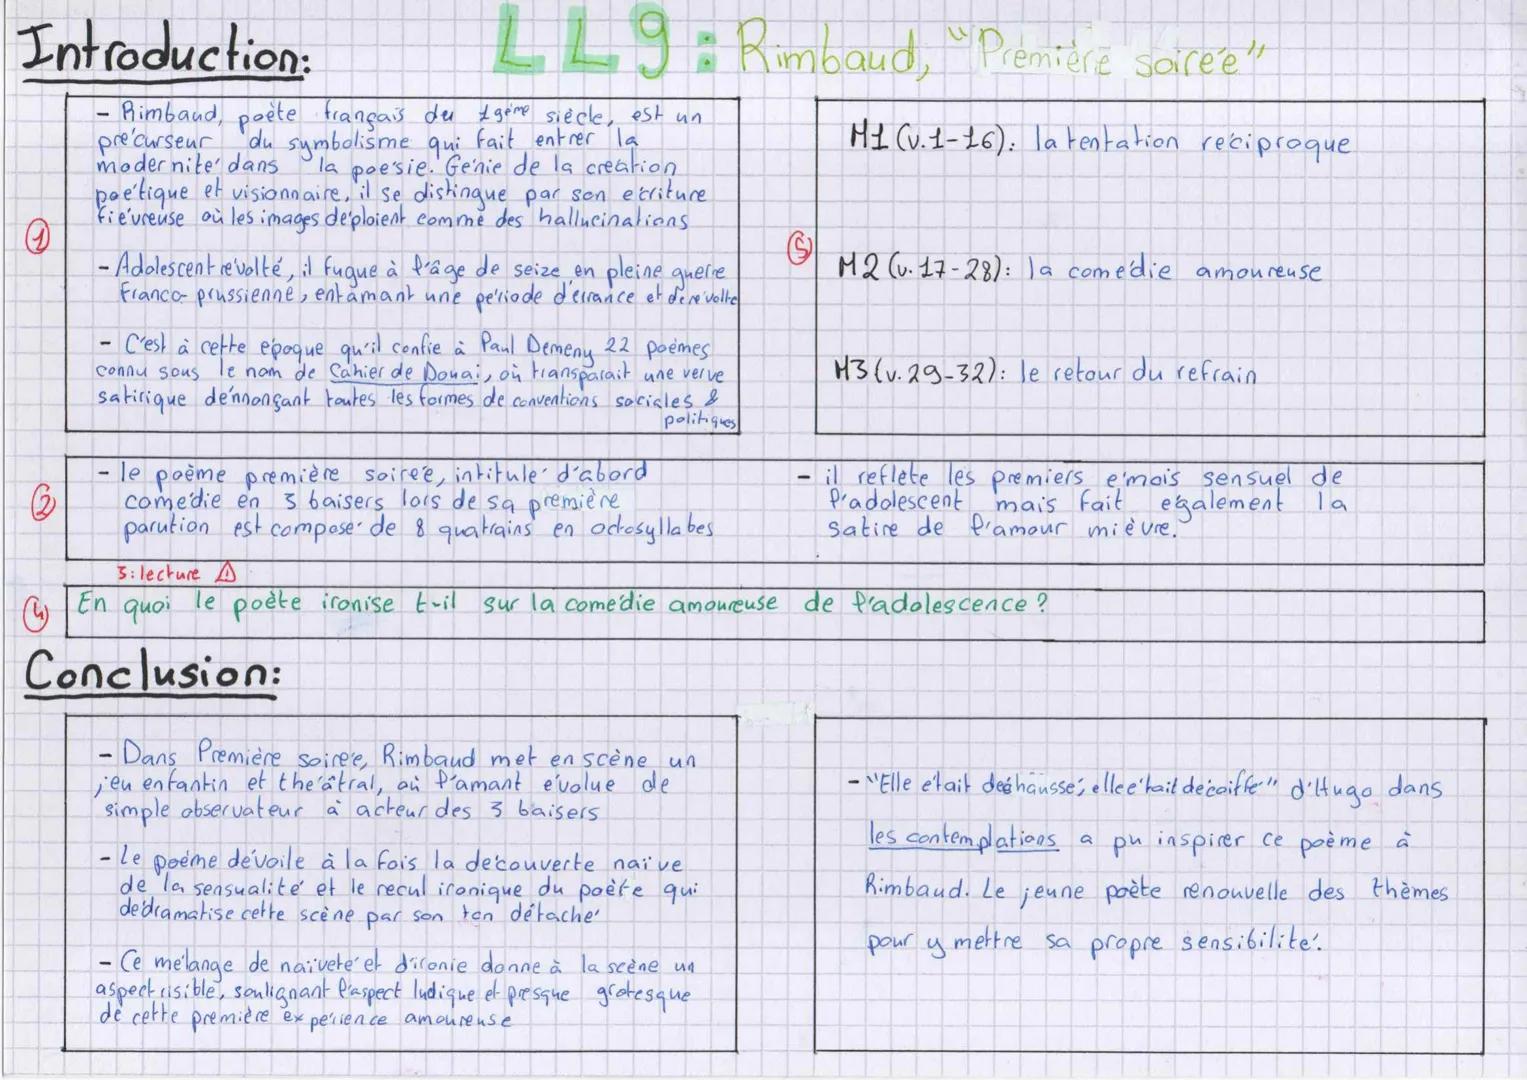 Introduction:
LL9 : Rimbaud, "Première soirée"
1
- Rimbaud, poète français du 19ème siècle, est un
précurseur du symbolisme qui fait entrer la
modernité dans la poésie. Génie de la création
poétique et visionnaire, il se distingue par son écriture
fiévreuse où les images déploient comme des hallucinations
- Adolescent révolté, il fugue à l'âge de seize en pleine guerre
Franco-prussienne, entamant une période d'errance et de révolte
- C'est à cette époque qu'il confie à Paul Demeny 22 poèmes
connu sous le nom de Cahier de Douai, où transparait une verve
satirique dénnonçant toutes les formes de conventions sociales &
politiques
5
M1 (v.1-16): la tentation réciproque
M2 (v.17-28): la comédie amoureuse
M3 (v.29-32): le retour du refrain
2
- le poème première soirée, intitulé d'abord
comédie en 3 baisers lors de sa première
parution est composé de 8 quatrains en octosyllabes
- il reflète les premiers émois sensuel de
l'adolescent mais fait également la
satire de l'amour mièvre.
3: lecture ⚠
4
En quoi le poète ironise t-il sur la comédie amoureuse de l'adolescence ?
Conclusion:
- Dans Première soirée, Rimbaud met en scène un
jeu enfantin et théâtral, où l'amant évolue de
simple observateur à acteur des 3 baisers
- Le poème dévoile à la fois la découverte naïve
de la sensualité et le recul ironique du poète qui
dédramatise cette scène par son ton détaché
- Ce mélange de naïveté et d'ironie donne à la scène un
aspect risible, soulignant l'aspect ludique et presque grotesque
de cette première expérience amoureuse
- "Elle était déchaussé, elle était décoiffé" d'Hugo dans
les contemplations a pu inspirer ce poème à
Rimbaud. Le jeune poète renouvelle des thèmes
pour y mettre sa propre sensibilité.